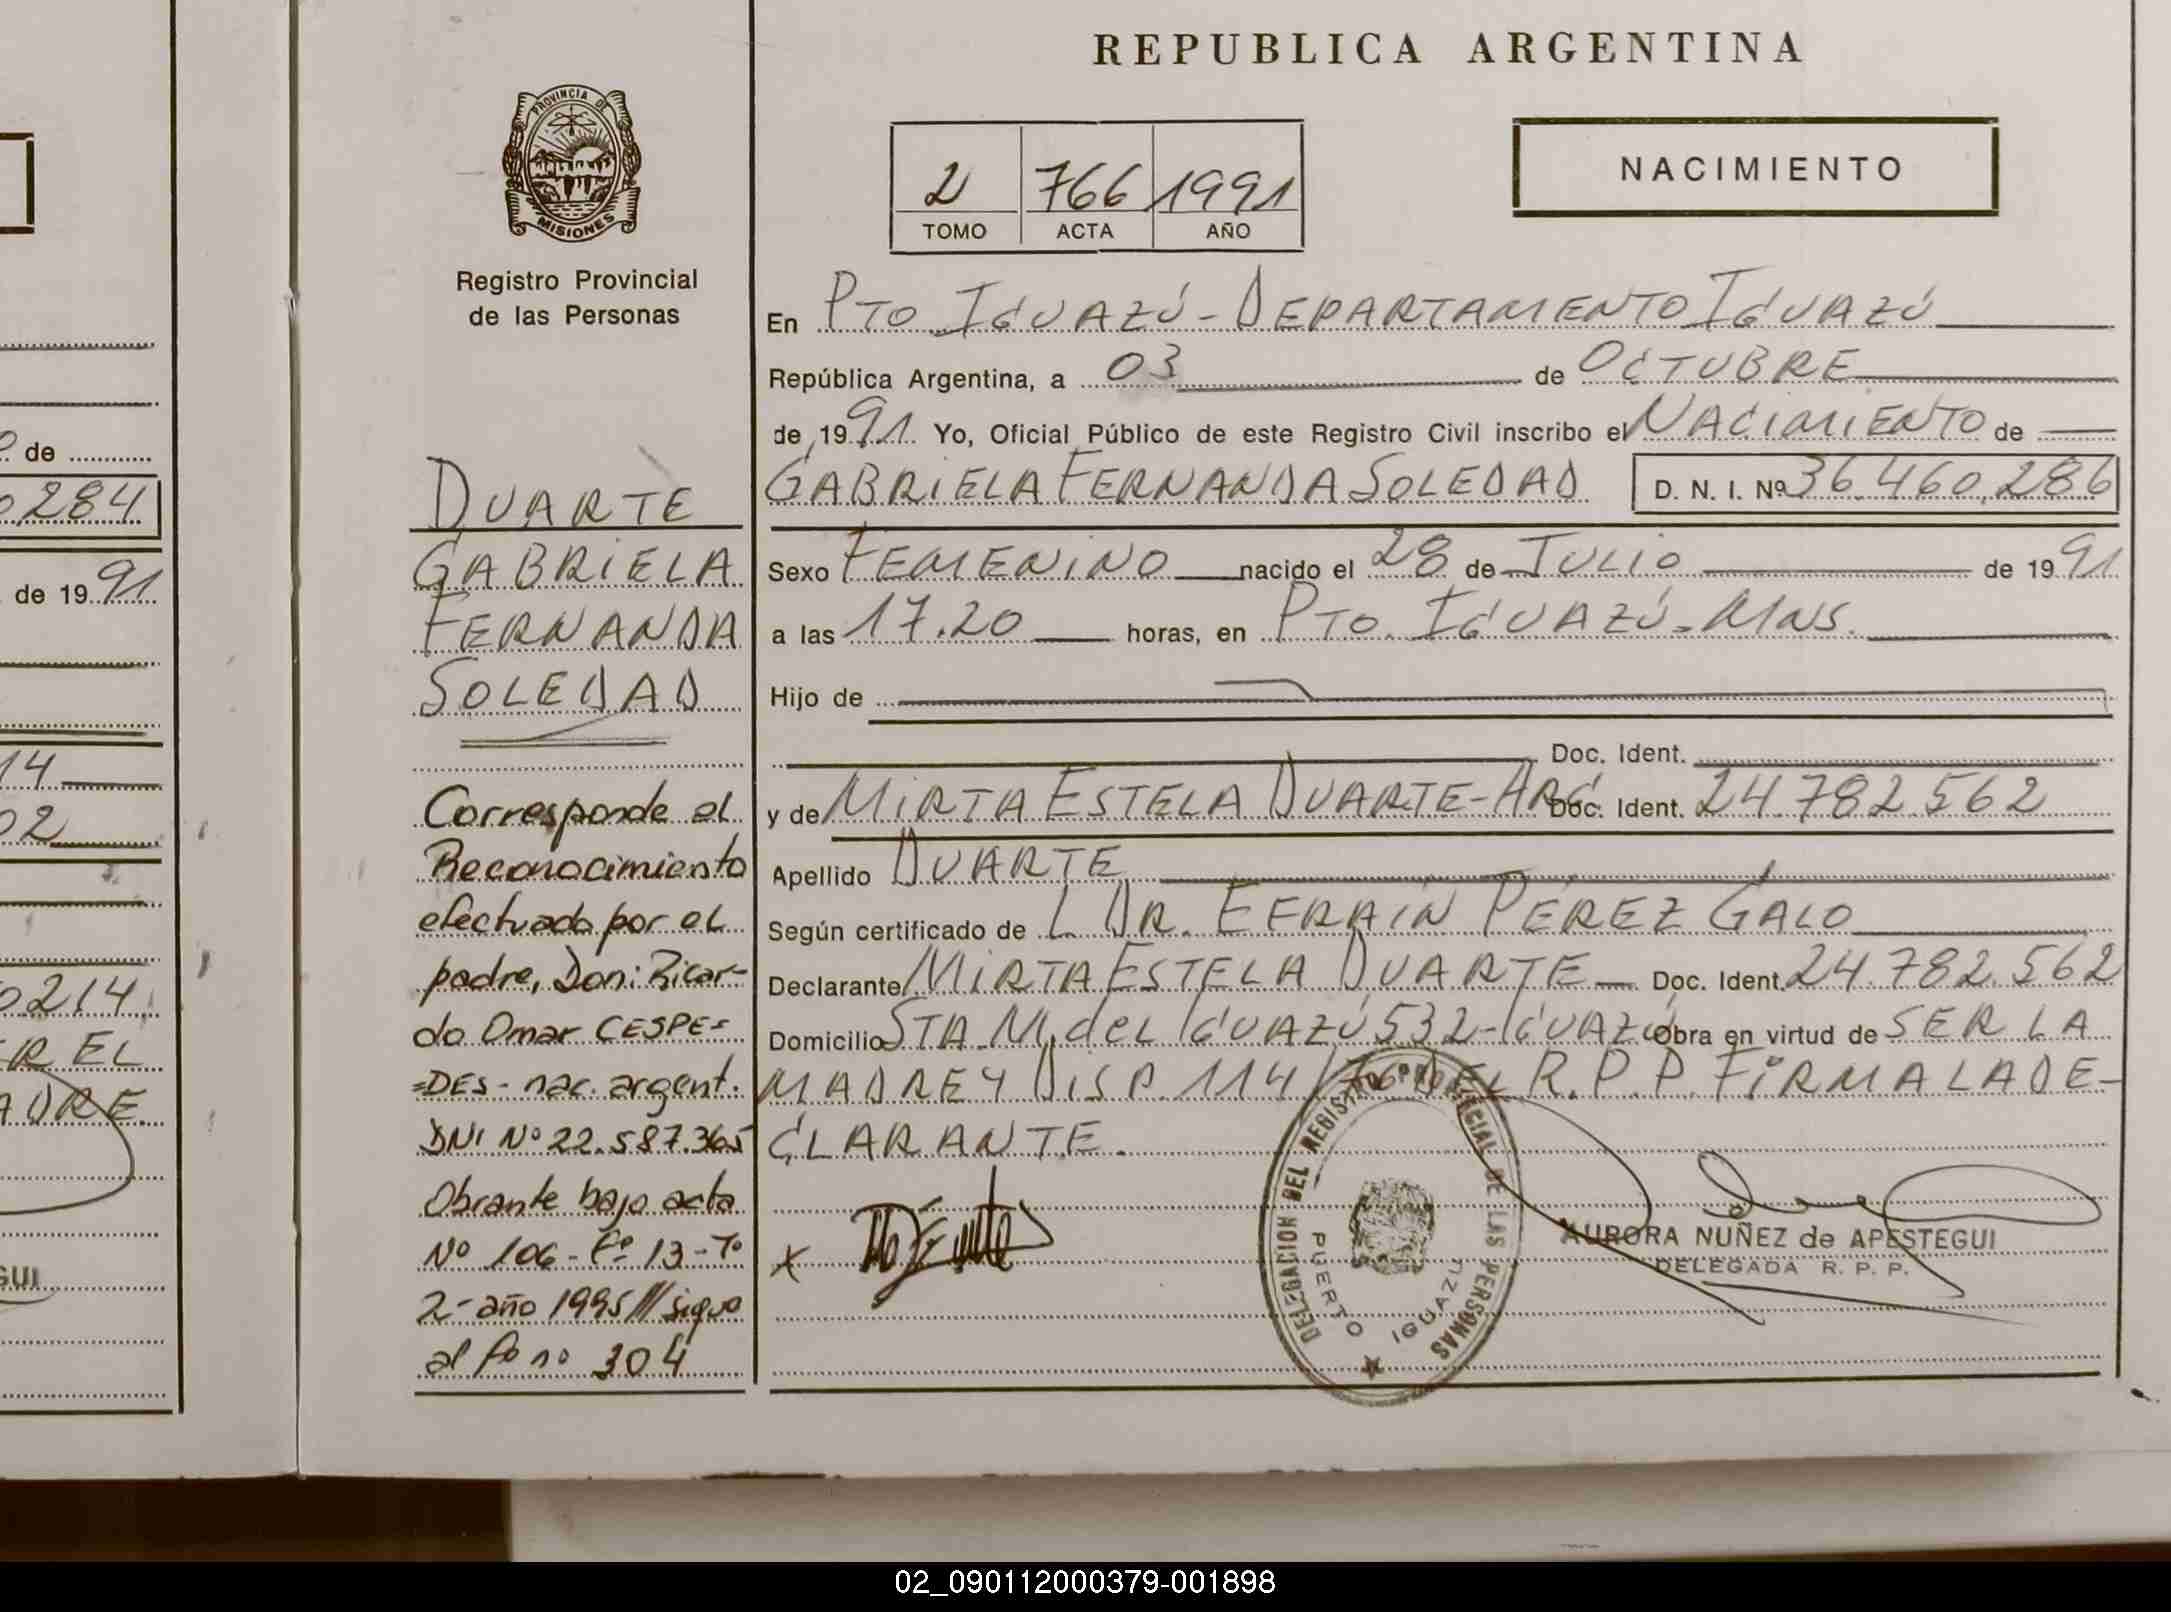 REPUBLICA ARGENTINA
PROVINCIA DE
MISIONES
Registro Provincial
de las Personas
2 766 1991
TOMO ACTA AÑO
NACIMIENTO
En PTO. IGUAZÚ - DEPARTAMENTO IGUAZÚ
República Argentina, a 03 de OCTUBRE
de 1991. Yo, Oficial Público de este Registro Civil inscribo el NACIMIENTO de
GABRIELA FERNANDA SOLEDAD D. N. I. Nº 36.460.286
Sexo FEMENINO nacido el 28 de JULIO de 1991
a las 17.20 horas, en PTO. IGUAZÚ - MNS.
Hijo de
Doc. Ident.
y de MIRTA ESTELA DUARTE - ARG Doc. Ident. 24.782.562
Apellido DUARTE
Según certificado de L DR. EFRAÍN PÉREZ GALO
Declarante MIRTA ESTELA DUARTE Doc. Ident. 24.782.562
Domicilio STA. M. del IGUAZÚ 532 - IGUAZÚ Obra en virtud de SER LA
MADRE Y DISP. 114/76 DEL R.P.P. FIRMA LA DE-
CLARANTE.
X
DELEGACION DEL REGISTRO PROVINCIAL DE LAS PERSONAS
PUERTO IGUAZU
AURORA NUÑEZ de APESTEGUI
DELEGADA R. P. P.
DUARTE
GABRIELA
FERNANDA
SOLEDAD
Corresponde al
Reconocimiento
efectuado por el
padre, Don: Ricar-
do Omar CESPE=
=DES - nac. argent.
DNI Nº 22.587.365
Obrante bajo acta
Nº 106 - Fº 13 - Tº
2 - año 1995 /// sigue
al fº nº 304
de
0.284
de 1991
14
02
0214
R EL
ADRE.
GUI
02_090112000379-001898